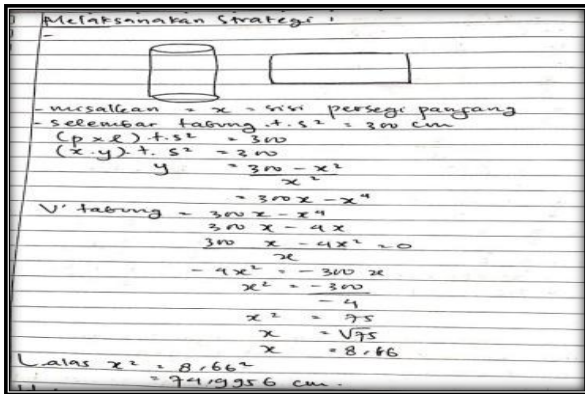 Melaksanakan Strategi :
- misalkan = x = sisi persegi panjang
- selembar tabung .t. s² = 300 cm
(p x l) .t. s² = 300
(x.y) .t. s² = 300
y = 300 - x²
x²
= 300x - x⁴
V tabung = 300x - x⁴
300 x - 4x
300 x - 4x² = 0
x
- 4x² = - 300 x
x² = -300
-4
x² = 75
x = √75
x = 8,66
L.alas x² = 8,66²
= 74,9956 cm.